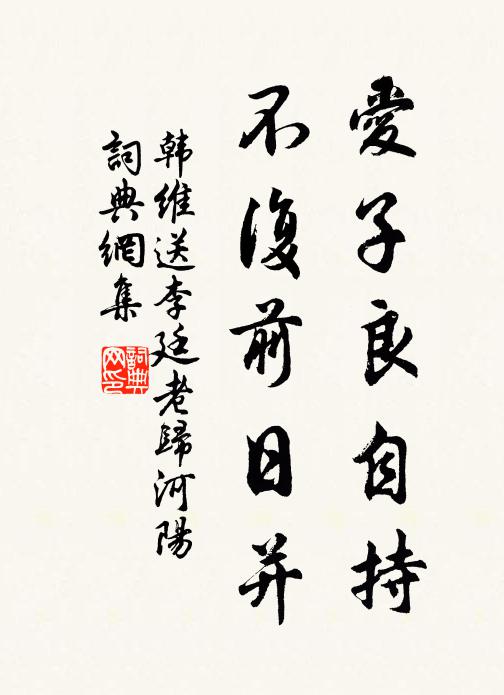 愛子良自持
不復前日并
韩維送李廷老歸河陽
詞典網集
詞典网印